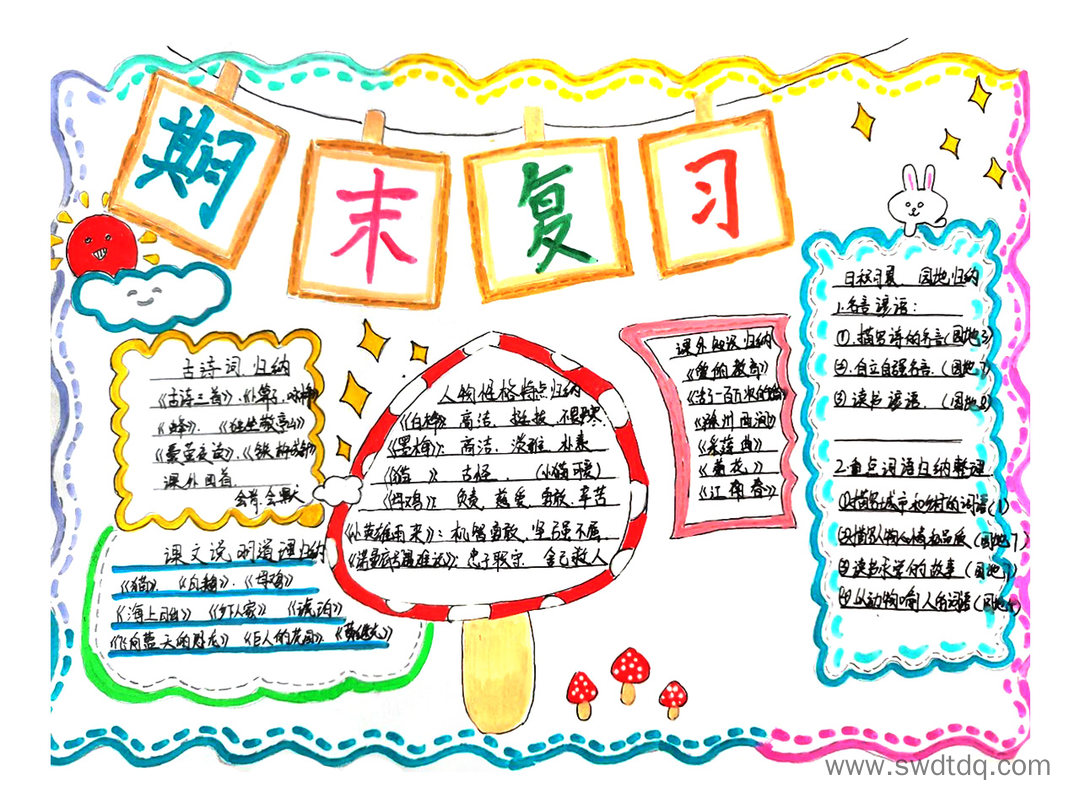 期末复习
古诗词归纳
《古诗三首》.《卜算子.咏梅》
《蜂》.《独坐敬亭山》
《芙蓉楼
课外
会背.会默
课文说明道理归纳
《猫》.《白鹅》.《母鸡》
《海上日出》《乡下人家》《琥珀》
《飞向蓝天的恐龙》《巨人的花园》.《黄继光》
人物性格特点归纳
《白桦》高洁、挺拔、不畏严寒.
《墨梅》:高洁、淡雅、朴素
《猫 》 古怪. (小猫可爱)
《母鸡》:负责、慈爱、勇敢、辛苦
《小英雄雨来》:机智勇敢、坚强不屈
《诺曼底号遇难记》:忠于职守、舍己救人
课外阅读归纳
《爱的教育》
《滁州西涧》
《采莲曲》
《菊花》
《江南春》
日积月累、园地归纳
1.名言谚语:
①.描写诗的名言(园地3)
②.自立自强名言.(园地7)
③ 读书谚语.(园地8)
2.重点词语归纳整理
(园地7)
③读书求学的故事(园地
④以动物喻人的词语(园地
www.swdtdq.com